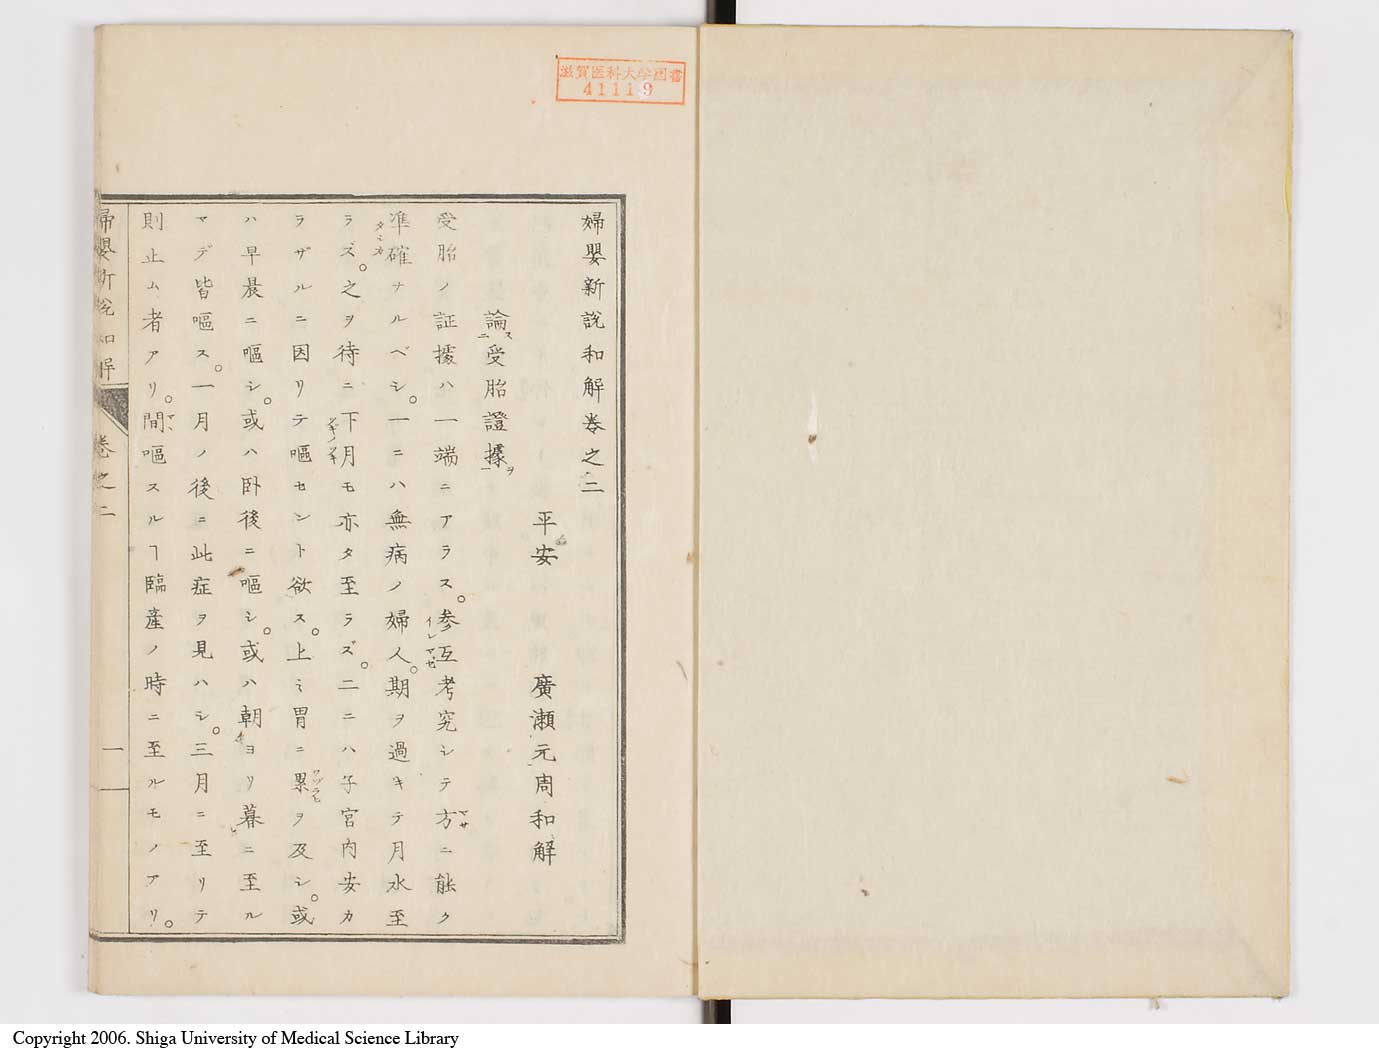 滋賀医科大学図書
41119
婦嬰新説和解卷之二
平安 廣瀬元周和解
論ス二受胎證據ヲ一
受胎ノ証據ハ一端ニアラス。參互考究シテ方ニ能ク
イレマゼ
マサ
準確ナルベシ。一ニハ無病ノ婦人。期ヲ過キテ月水至
タシカ
ラズ。之ヲ待ニ下月モ亦タ至ラズ。二ニハ子宮内安カ
ツギノツキ
ラザルニ因リテ嘔セント欲ス。上ミ胃ニ累ヲ及シ。或
ワヅラヒ
ハ早晨ニ嘔シ。或ハ卧後ニ嘔シ。或ハ朝ヨリ暮ニ至ル
マデ皆嘔ス。一月ノ後ニ此症ヲ見ハシ。三月ニ至リテ
則止ム者アリ。間嘔スルヿ臨產ノ時ニ至ルモノアリ。
マヽ
婦嬰新說和解 卷之二 一
Copyright 2006. Shiga University of Medical Science Library